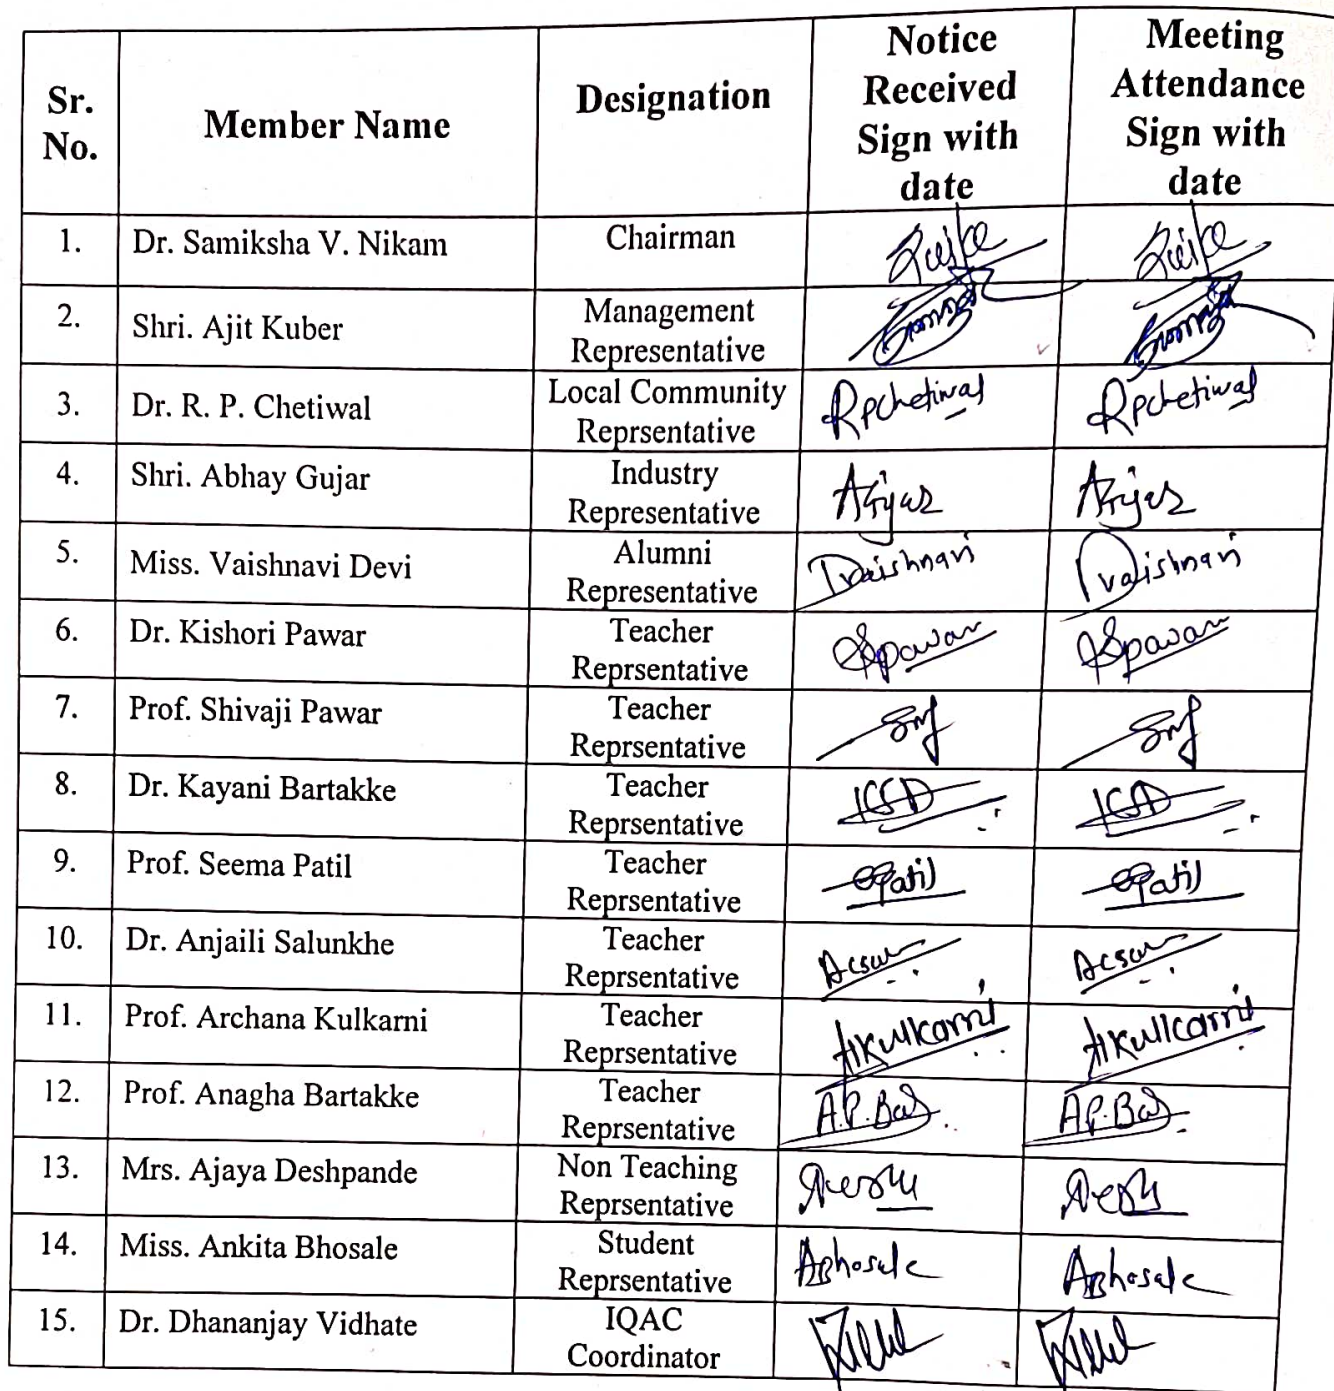 Sr. No.
Member Name
Designation
Notice Received Sign with date
Meeting Attendance Sign with date
1. Dr. Samiksha V. Nikam Chairman
2. Shri. Ajit Kuber Management Representative
3. Dr. R. P. Chetiwal Local Community Reprsentative Rpchetiwal Rpchetiwal
4. Shri. Abhay Gujar Industry Representative
5. Miss. Vaishnavi Devi Alumni Representative Dvaishnavi Dvaishnavi
6. Dr. Kishori Pawar Teacher Reprsentative
7. Prof. Shivaji Pawar Teacher Reprsentative
8. Dr. Kayani Bartakke Teacher Reprsentative
9. Prof. Seema Patil Teacher Reprsentative
10. Dr. Anjaili Salunkhe Teacher Reprsentative
11. Prof. Archana Kulkarni Teacher Reprsentative AKulkarni AKulkarni
12. Prof. Anagha Bartakke Teacher Reprsentative
13. Mrs. Ajaya Deshpande Non Teaching Reprsentative
14. Miss. Ankita Bhosale Student Reprsentative ABhosale ABhosale
15. Dr. Dhananjay Vidhate IQAC Coordinator